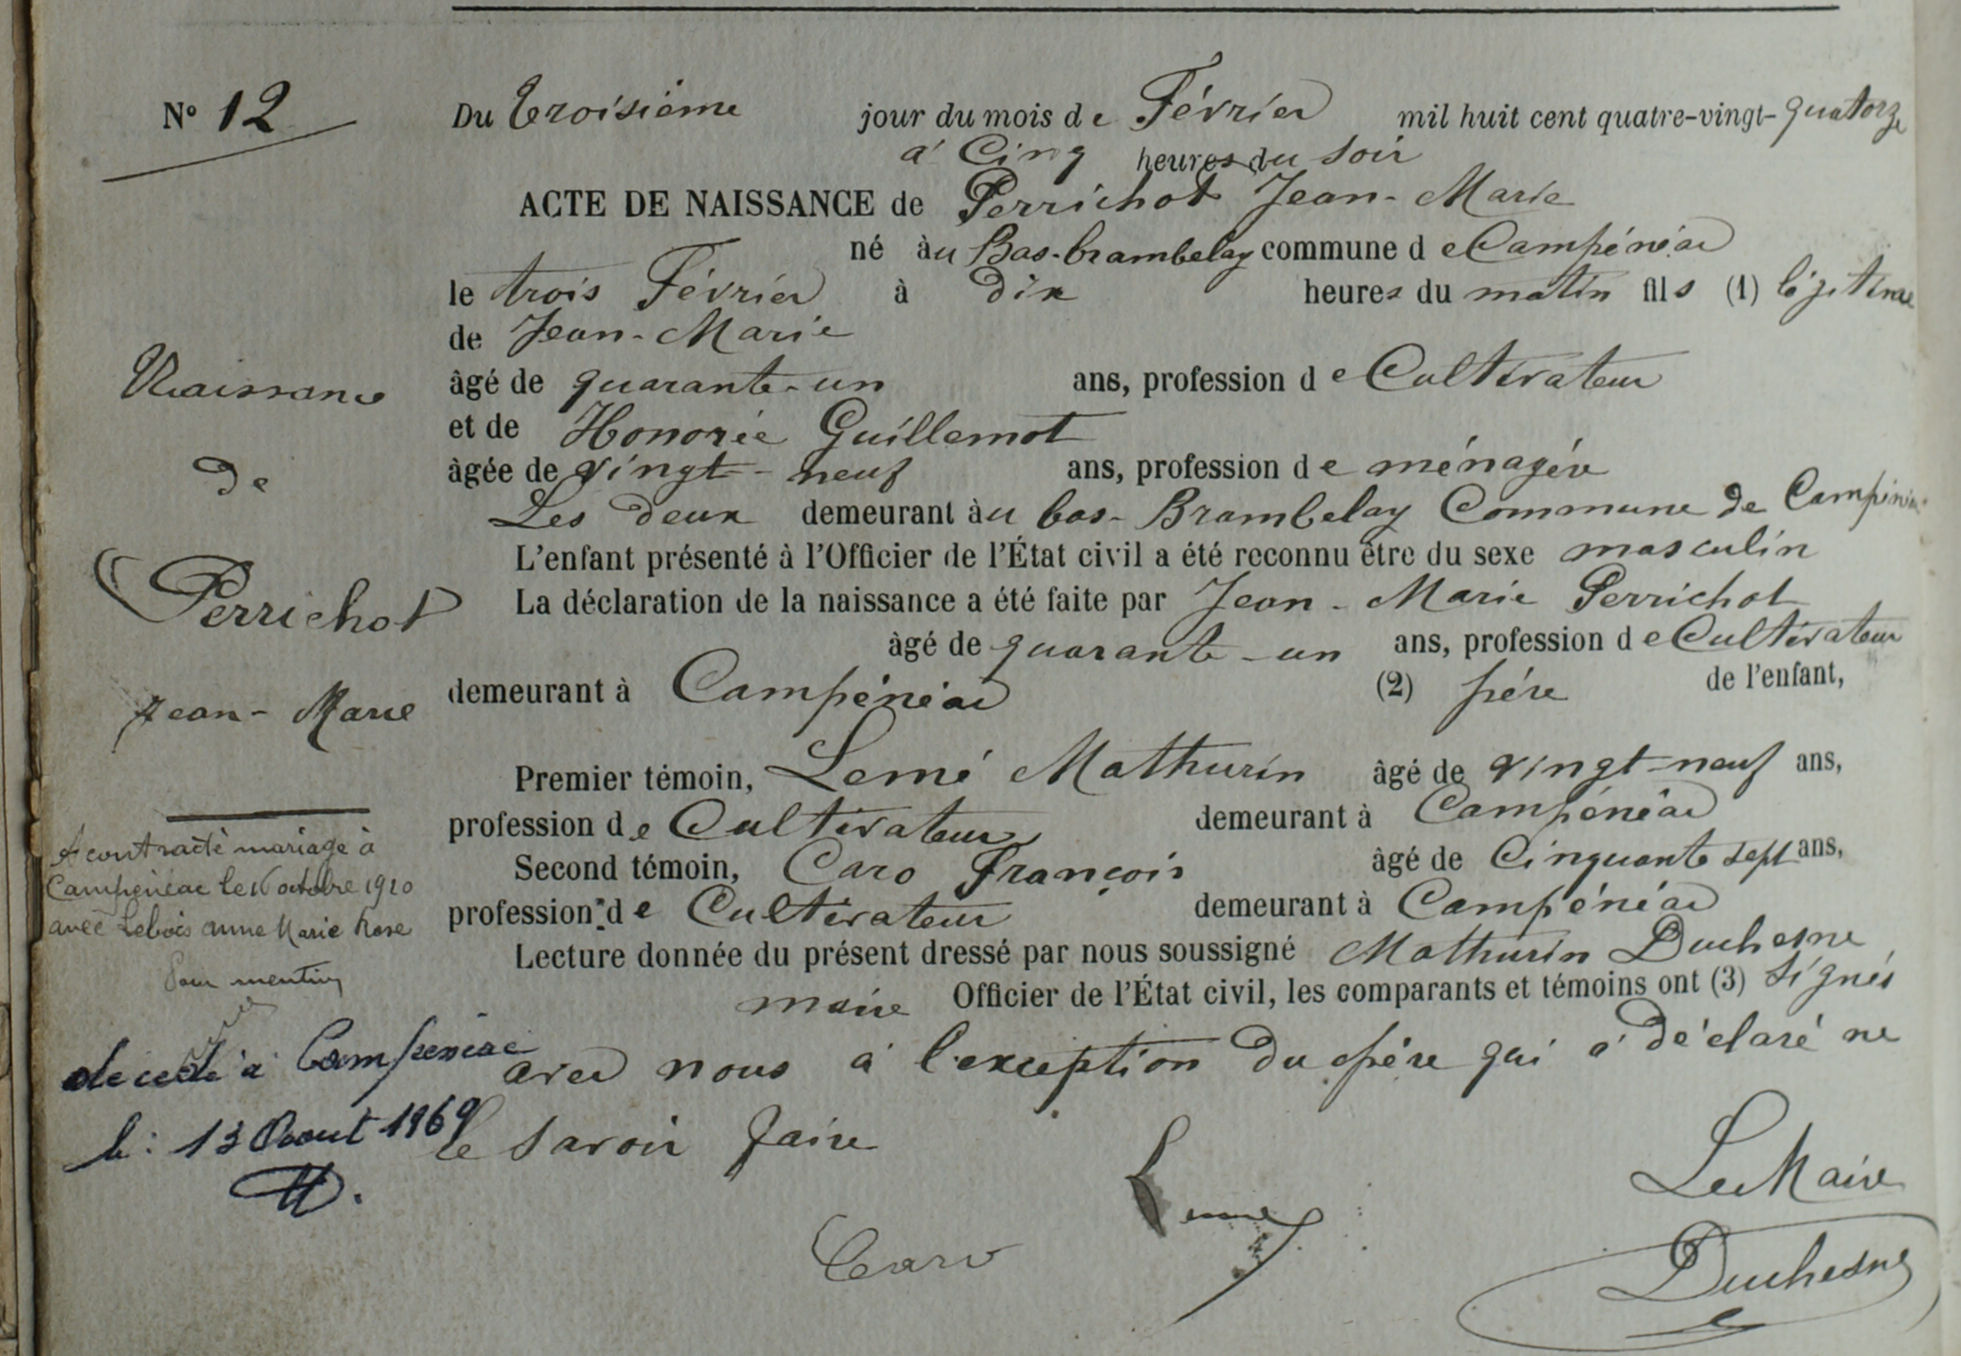 N° 12
Du troisième jour du mois de Février mil huit cent quatre-vingt-quatorze
à Cinq heures du soir
ACTE DE NAISSANCE de Perrichot Jean-Marie
né àu Bas-brambelay commune de Campénéac
le trois Février à dix heures du matin fils (1) légitime
de Jean-Marie
âgé de quarante-un ans, profession de Cultivateur
et de Honorée Guillemot
âgée de vingt-neuf ans, profession de ménagère
Les deux demeurant àu bas-Brambelay Commune de Campénéac
L'enfant présenté à l'Officier de l'État civil a été reconnu être du sexe masculin
La déclaration de la naissance a été faite par Jean-Marie Perrichot
âgé de quarante-un ans, profession de Cultivateur
demeurant à Campénéac (2) père de l'enfant,
Premier témoin, Lemé Mathurin âgé de vingt-neuf ans,
profession de Cultivateur demeurant à Campénéac
Second témoin, Caro François âgé de Cinquante sept ans,
profession de Cultivateur demeurant à Campénéac
Lecture donnée du présent dressé par nous soussigné Mathurin Duchesne
maire Officier de l'État civil, les comparants et témoins ont (3) signés
avec nous à l'exception du père qui a déclaré ne
le savoir faire
Le Maire
Caro
Duchesne
Naissance
de
Perrichot
Jean-Marie
A contracté mariage à
Campénéac le octobre 1920
avec Lebois anne Marie Rose
Pour mention
décédé à Campénéac
le: 13 Aout 1969